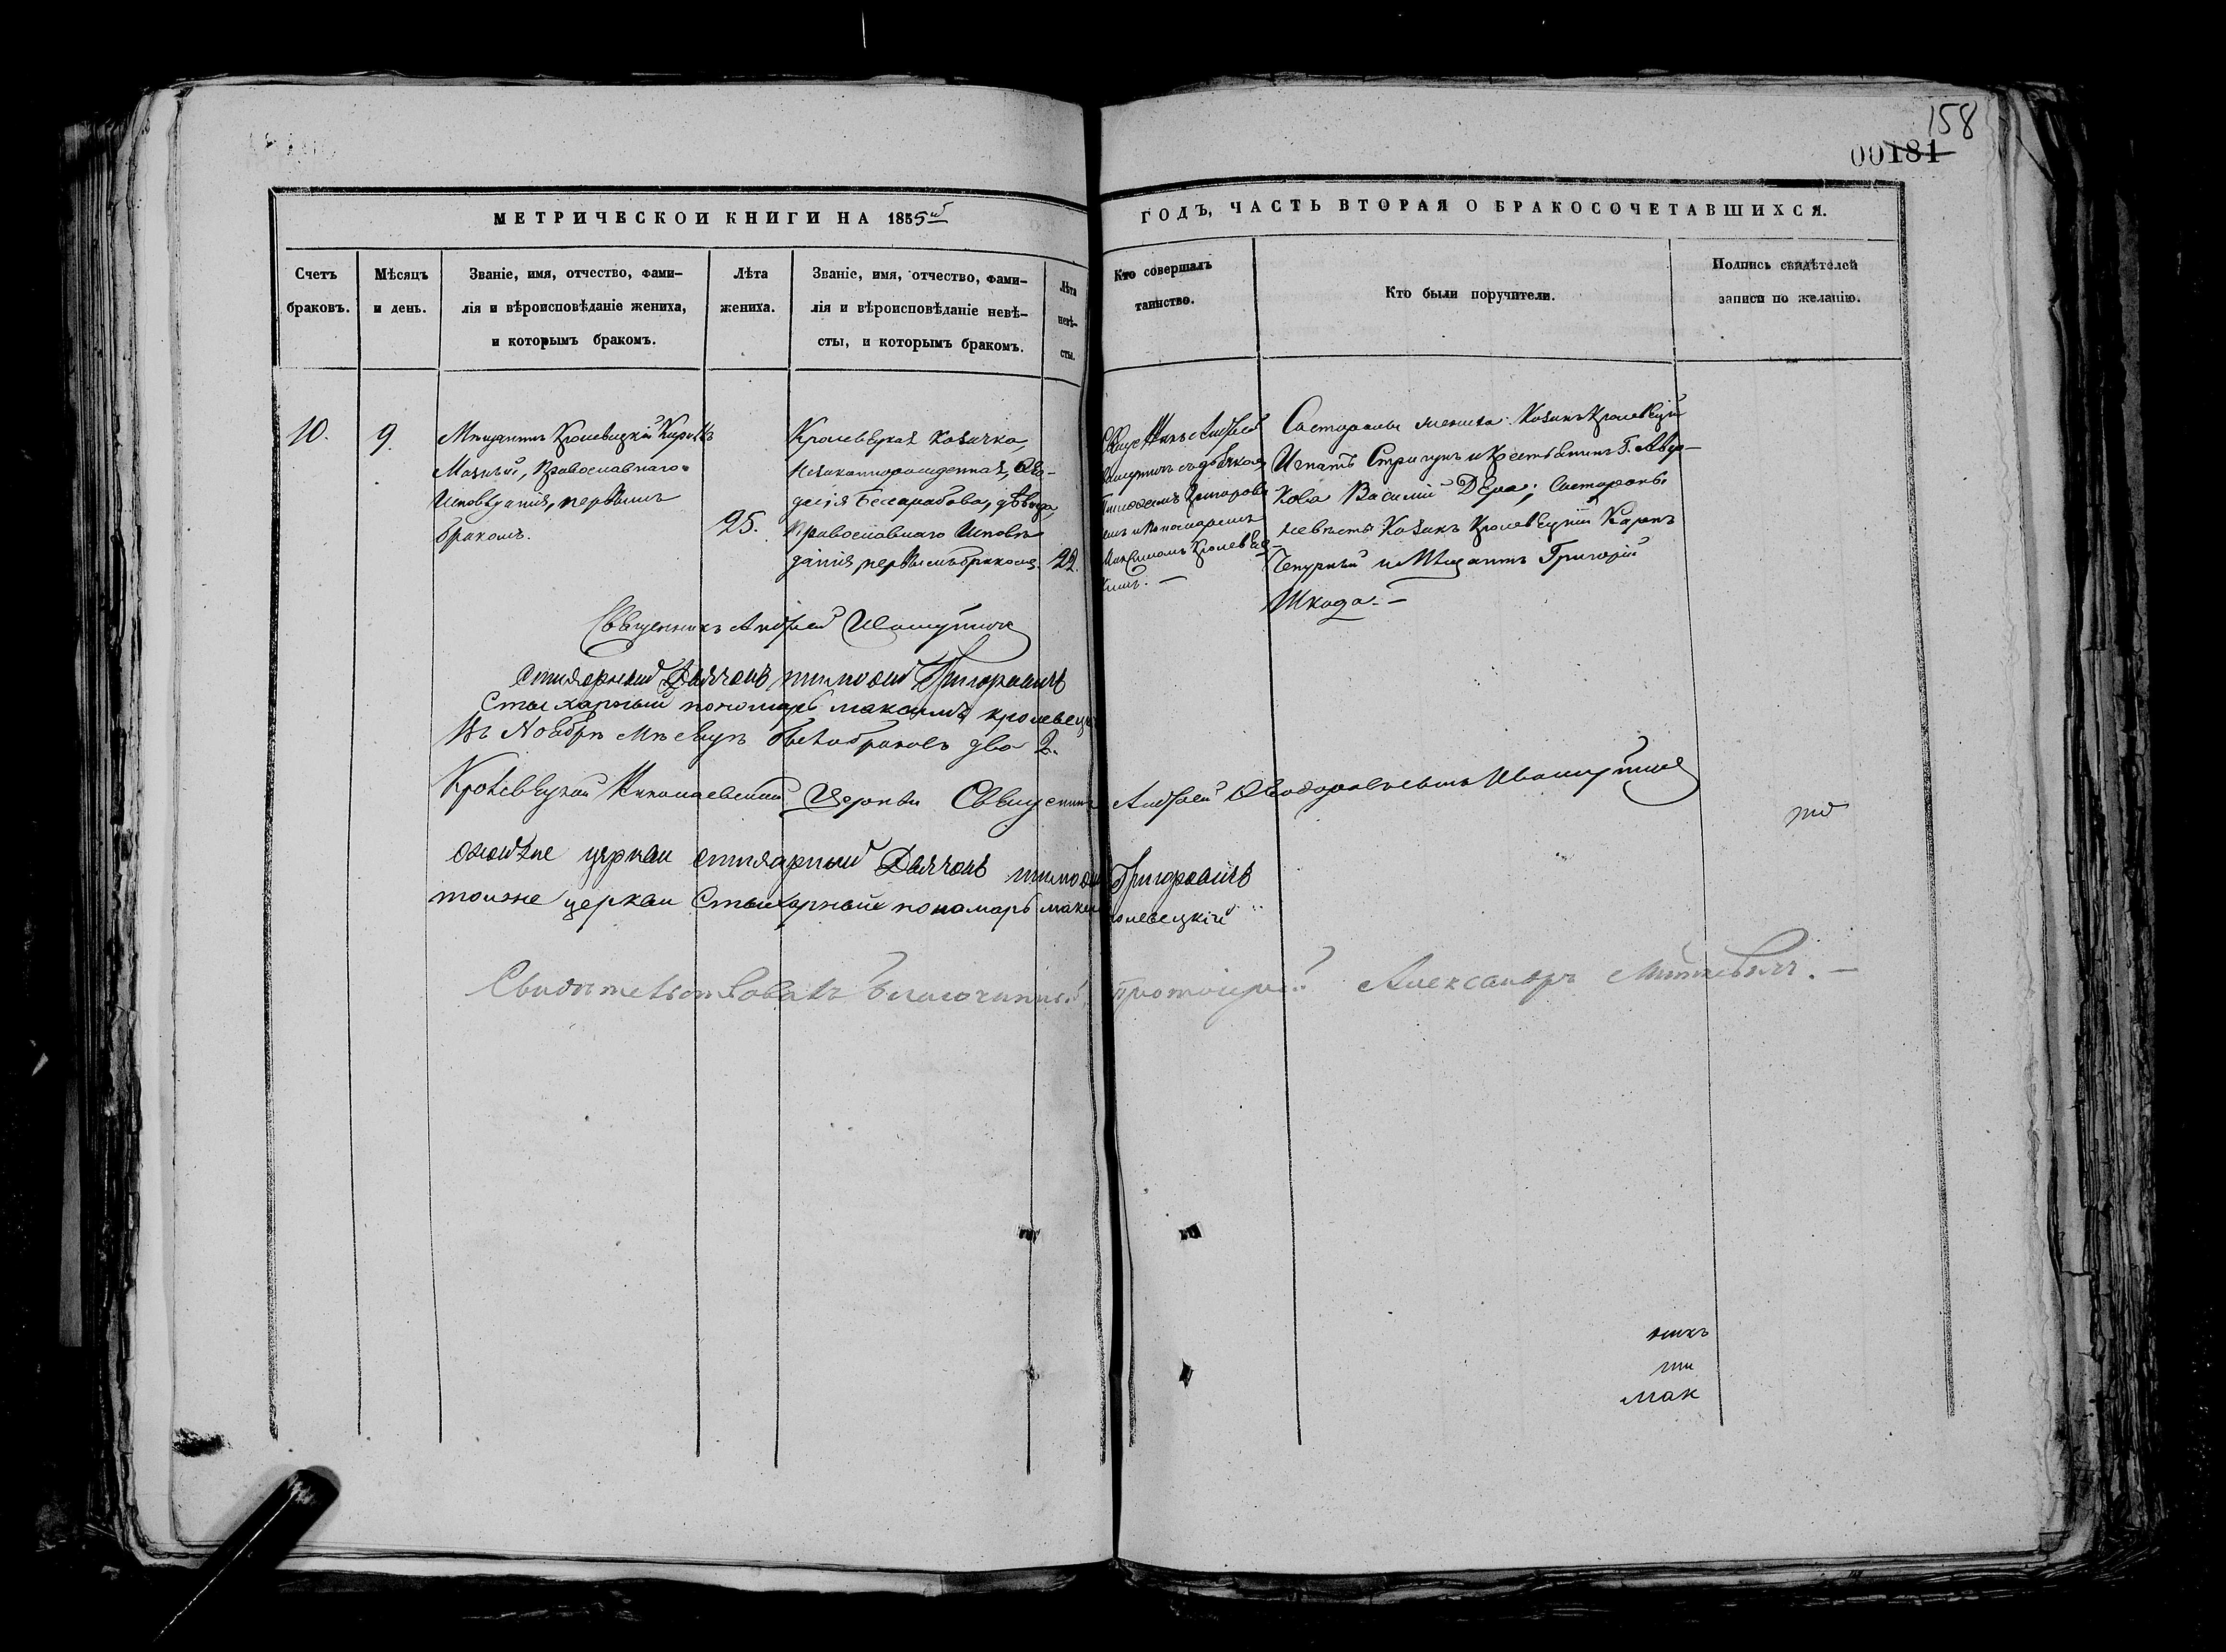 158
00181
МЕТРИЧЕСКОЙ КНИГИ НА 1855й
ГОДЪ, ЧАСТЬ ВТОРАЯ О БРАКОСОЧЕТАВШИХСЯ.
Счетъ
браковъ.
Мѣсяцъ
и день.
Званіе, имя, отчество, фами-
лія и вѣроисповѣданіе жениха,
и которымъ бракомъ.
Лѣта
жениха.
Званіе, имя, отчество, фами-
лія и вѣроисповѣданіе невѣ-
сты, и которымъ бракомъ.
Лѣта
невѣ-
сты.
Кто совершалъ
таинство.
Кто были поручители.
Подпись свидѣтелей
записи по желанію.
10.
9.
Мѣщанинъ Кролевецкій
Православнаго
Исповѣданія, первымъ
бракомъ.
25.
Кролевецкая козачка,
Незаконнорожденная, Ѳео-
досія Бессарабова, дѣвица,
Православнаго Исповѣ-
данія, первымъ бракомъ.
22.
Андрей
съ дьячкомъ
Тимоѳеемъ Григорови
и Пономаремъ
Максимомъ Кролевец-
кимъ. —
Состороны жениха: Козакъ Кролевецкій
Игнатъ Стригунъ и Крестьянинъ Г. Авер-
кова Василій Дера; Состороны
невѣсты Козакъ Кролевецкій Карпъ
и Мѣщанинъ Григорій
Шкода. —
Священникъ Андрей Ивашутичь
Стихарный Дьячокъ тимоѳей Григоровичъ
Стихарный пономарь максимъ кролевец
Въ Ноябрѣ Мѣсяцѣ браковъ два 2.
Кролевецкой Николаевской Церкви Священникъ Андрей Ѳеодоровъ сынъ Ивашутичь
Оноѝже церкви стихарный Дьячокъ тимоѳей Григоровичъ
тоиже церкви Стихарный пономарь макси ролевецкій
то
Свидѣтельствовалъ благочинный, протоіерей Александръ —
никъ
ти
мак